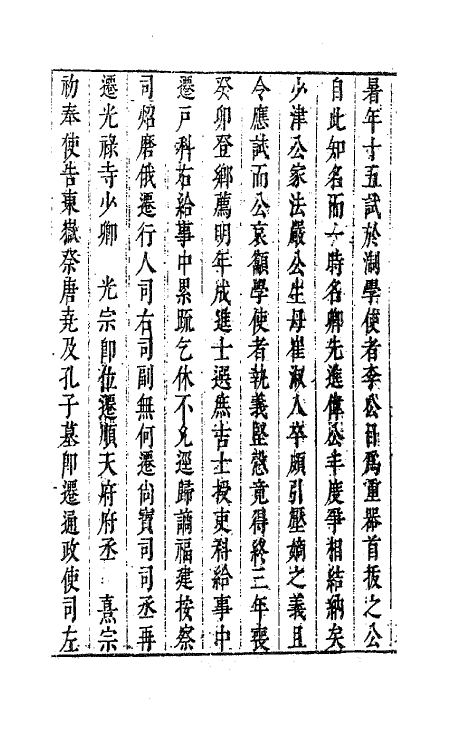 暑年十五試於淛學使者李公目爲重器首拔之公
自此知名而一時名卿先進偉公丰度爭相結納矣
少津公家法嚴公生母崔淑人卒頗引壓嫡之義且
令應試而公哀籲學使者執義堅懇竟得終三年喪
癸卯登鄉薦明年成進士選庶吉士授吏科給事中
遷戶科右給事中累疏乞休不允逕歸謫福建按察
司炤磨俄遷行人司右司副無何遷尙寶司司丞再
遷光祿寺少卿　光宗卽位遷順天府府丞　熹宗
初奉使告東嶽祭唐堯及孔子墓卽遷通政使司左